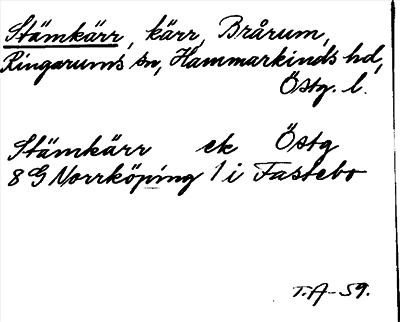 Stämkärr, kärr, Brårum,
Ringarums sn, Hammarkinds hd,
Östg. l.
Stämkärr ek Östg
8 G Norrköping 1 i Fastebo
T.A-59.